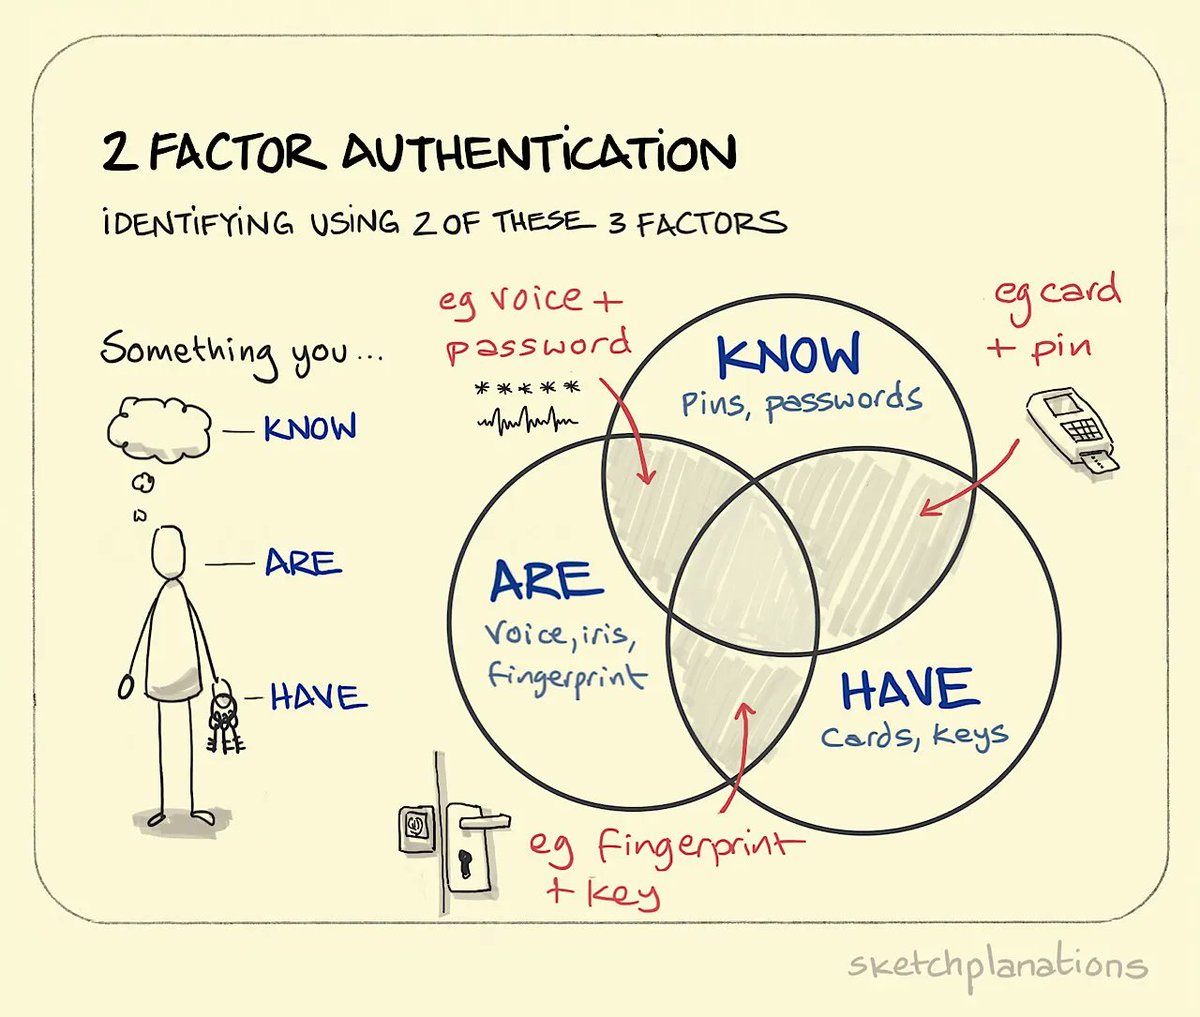 2 FACTOR AUTHENTICATION
IDENTIFYING USING 2 OF THESE 3 FACTORS
Something you...
KNOW
ARE
HAVE
eg voice +
password
*****
eg card
+ pin
KNOW
Pins, passwords
ARE
Voice, iris,
fingerprint
HAVE
Cards, keys
eg fingerprint
+ key
sketchplanations